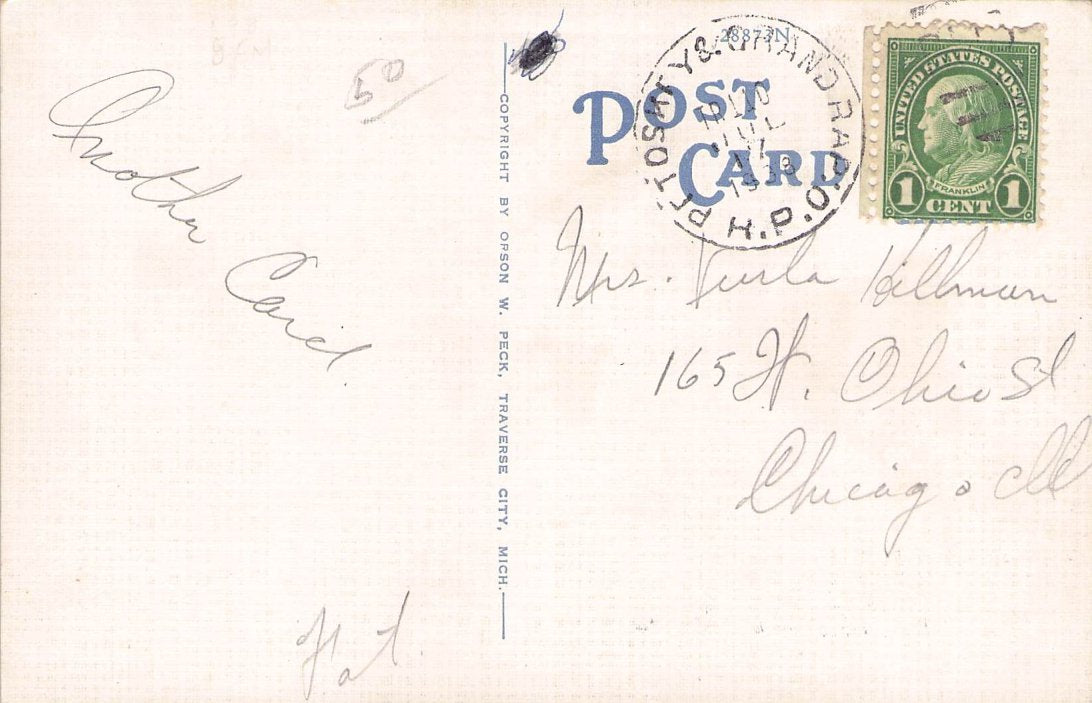 Another
Card.
50
COPYRIGHT BY ORSON W. PECK, TRAVERSE CITY, MICH.
28873N
POST
CARD
PETOSKEY & GRAND RAP.
R.P.O.
JUL
1938
UNITED STATES POSTAGE
FRANKLIN
1 CENT 1
Mrs. Hillman
165 W. Ohio St
Chicago Ill